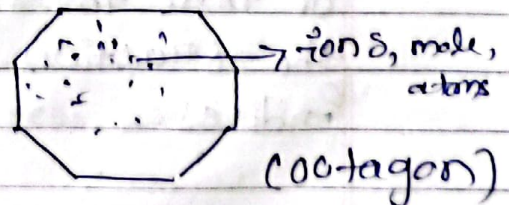 ions, mole,
atoms
(octagon)